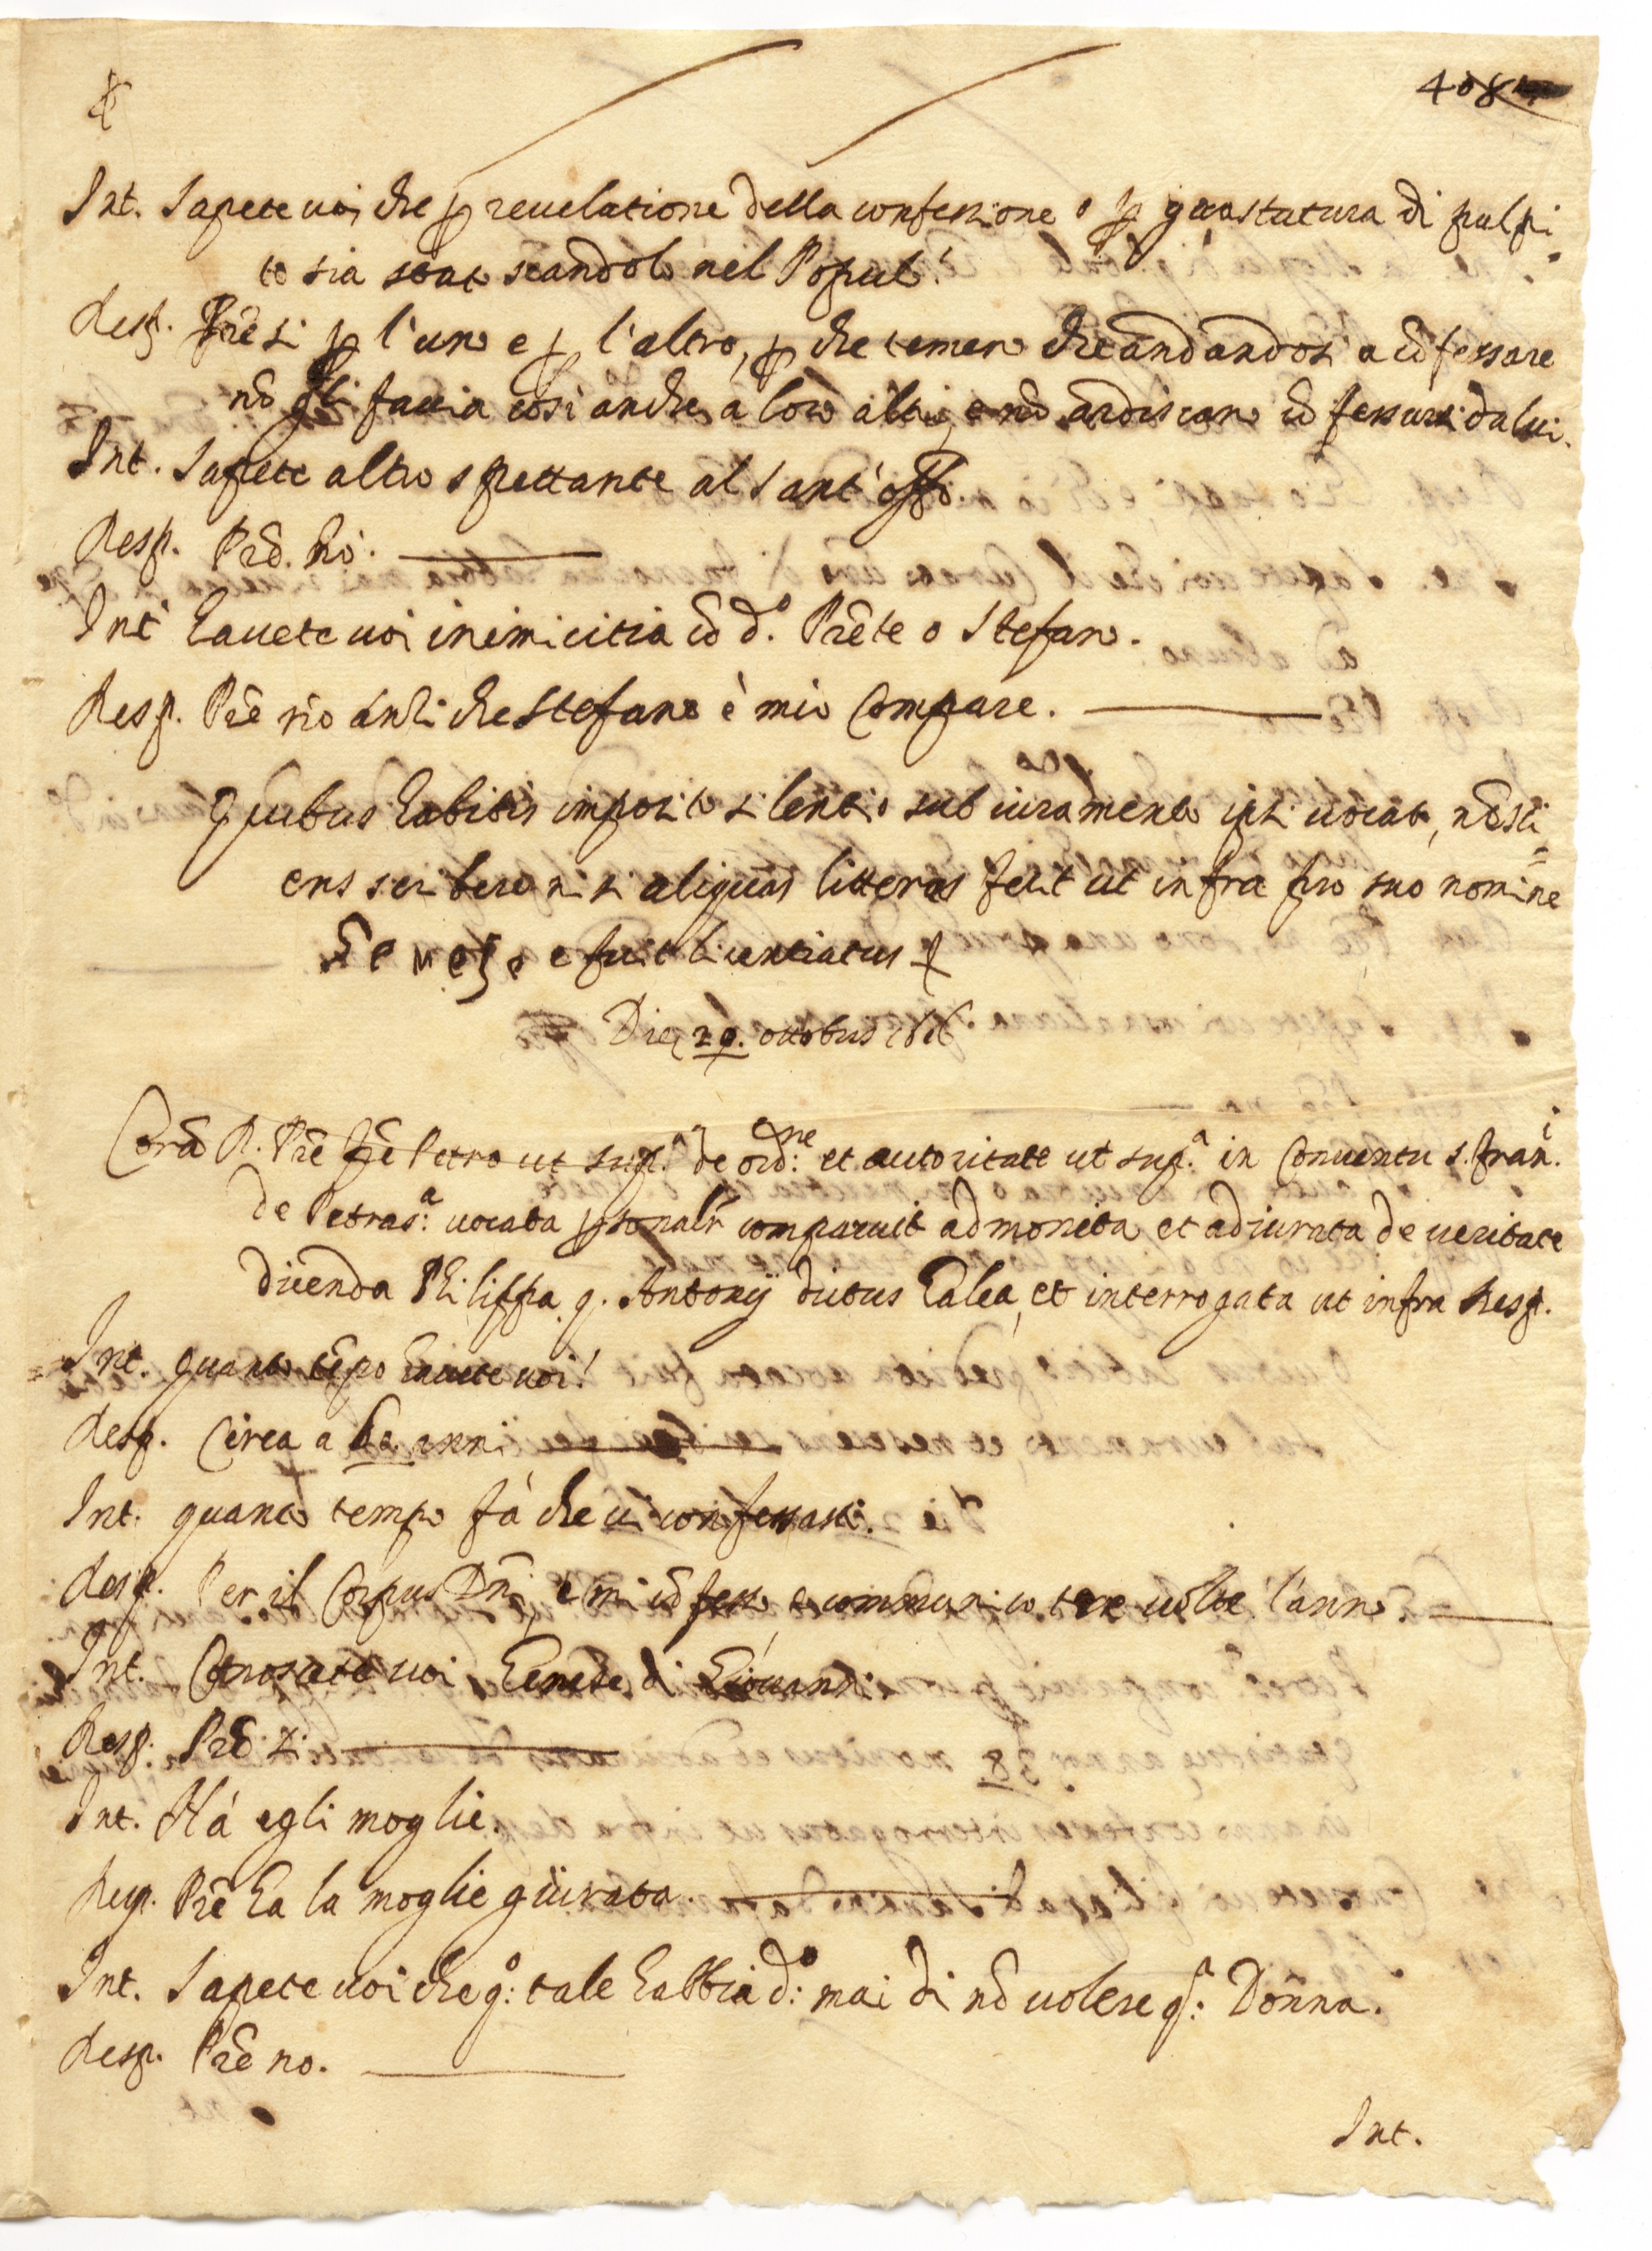 408
Int. Sapete uoi che p reuelatione della confessione o p guastatura di pulpi
to sia stato scandolo nel Populo!
Resp. Prẽ si p l'uno e p l'altro, p che temeno che andandosi a cõfessare
nõ gli faccia cosi anche a loro altri, e nõ ardiscono cõfessarsi da lui.
Int. Sapete altro spettante al Sant'offo.
Resp. Prẽ. nò.
Int. hauete uoi inimicitia cõ d.o Prẽte o Stefano.
Resp. Prẽ nò anzi che Stefano è mio Compare.
Quibus habitis imposito silentio sub iuramento ipsi uocato, nẽsci=
ens scribere nisi aliquas litteras fecit ut infra pro suo nomine
e fuit licentiatus
Die 29. ottobris
Corã R. Prẽ Frẽ Petro ut sup.a de ord.ne et autoritate ut sup.a in Conuentu S. Fran.i
de Petras.a uocata psonalr comparuit admonita et adiurata de ueritate
dicenda Philippa q. Antonij dictus Galea, et interrogata ut infra Resp.
Int. quanto tẽpo hauete uoi!
Resp. Circa a anni
Int. quanto tempo fà che ui confessasti.
Resp. Per il Corpus Dñi, e mi cõfesso, e communico tre uolte l'anno.
Int. Conoscete uoi Genese di Giouanni
Resp. Prẽ si.
Int. Hà egli moglie.
Resp. Prẽ ha la moglie giurata.
Int. Sapete uoi che q.o tale habbia d.o mai di nõ uolere q.a Donna.
Resp. Prẽ no.
Int.